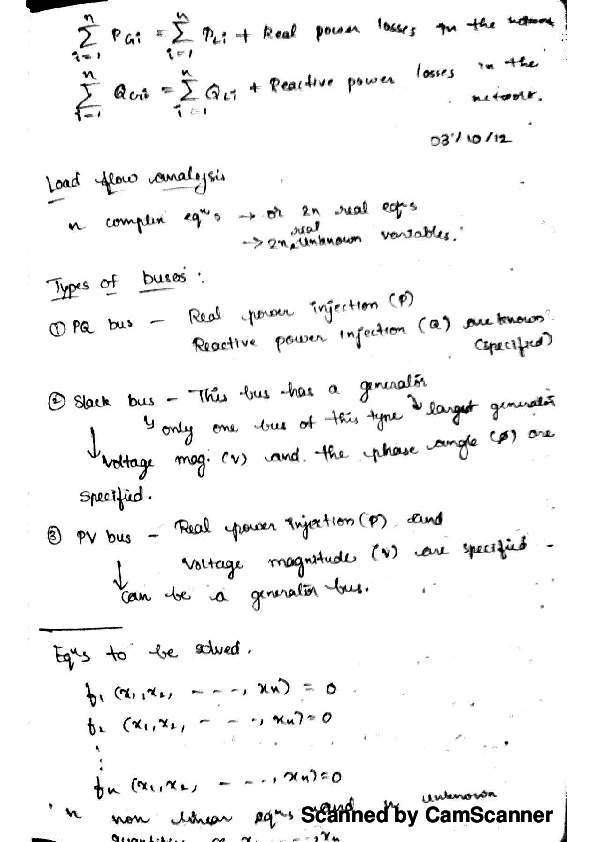 n n
∑ PGi = ∑ PLi + Real power losses in the network
i=1 i=1
n n
∑ QGi = ∑ QLi + Reactive power losses in the network.
i=1 i=1
03/10/12
Load flow analysis
n complex eqⁿs → or 2n real eqⁿs
→ 2n real unknown variables.
Types of buses :
① PQ bus – Real power injection (P)
Reactive power injection (Q) are known (specified)
② Slack bus – This bus has a generator
↳ only one bus of this type ↳ largest generator
↓ Voltage mag. (V) and the phase angle (φ) are
specified.
③ PV bus – Real power injection (P) and
Voltage magnitude (V) are specified –
↓ Can be a generator bus.
Eqⁿs to be solved.
f₁ (x₁, x₂, - - - -, xn) = 0
f₂ (x₁, x₂, - - - -, xn) = 0
⋮
fn (x₁, x₂, - - - -, xn) = 0
n non linear eqⁿs and n unknown
Scanned by CamScanner